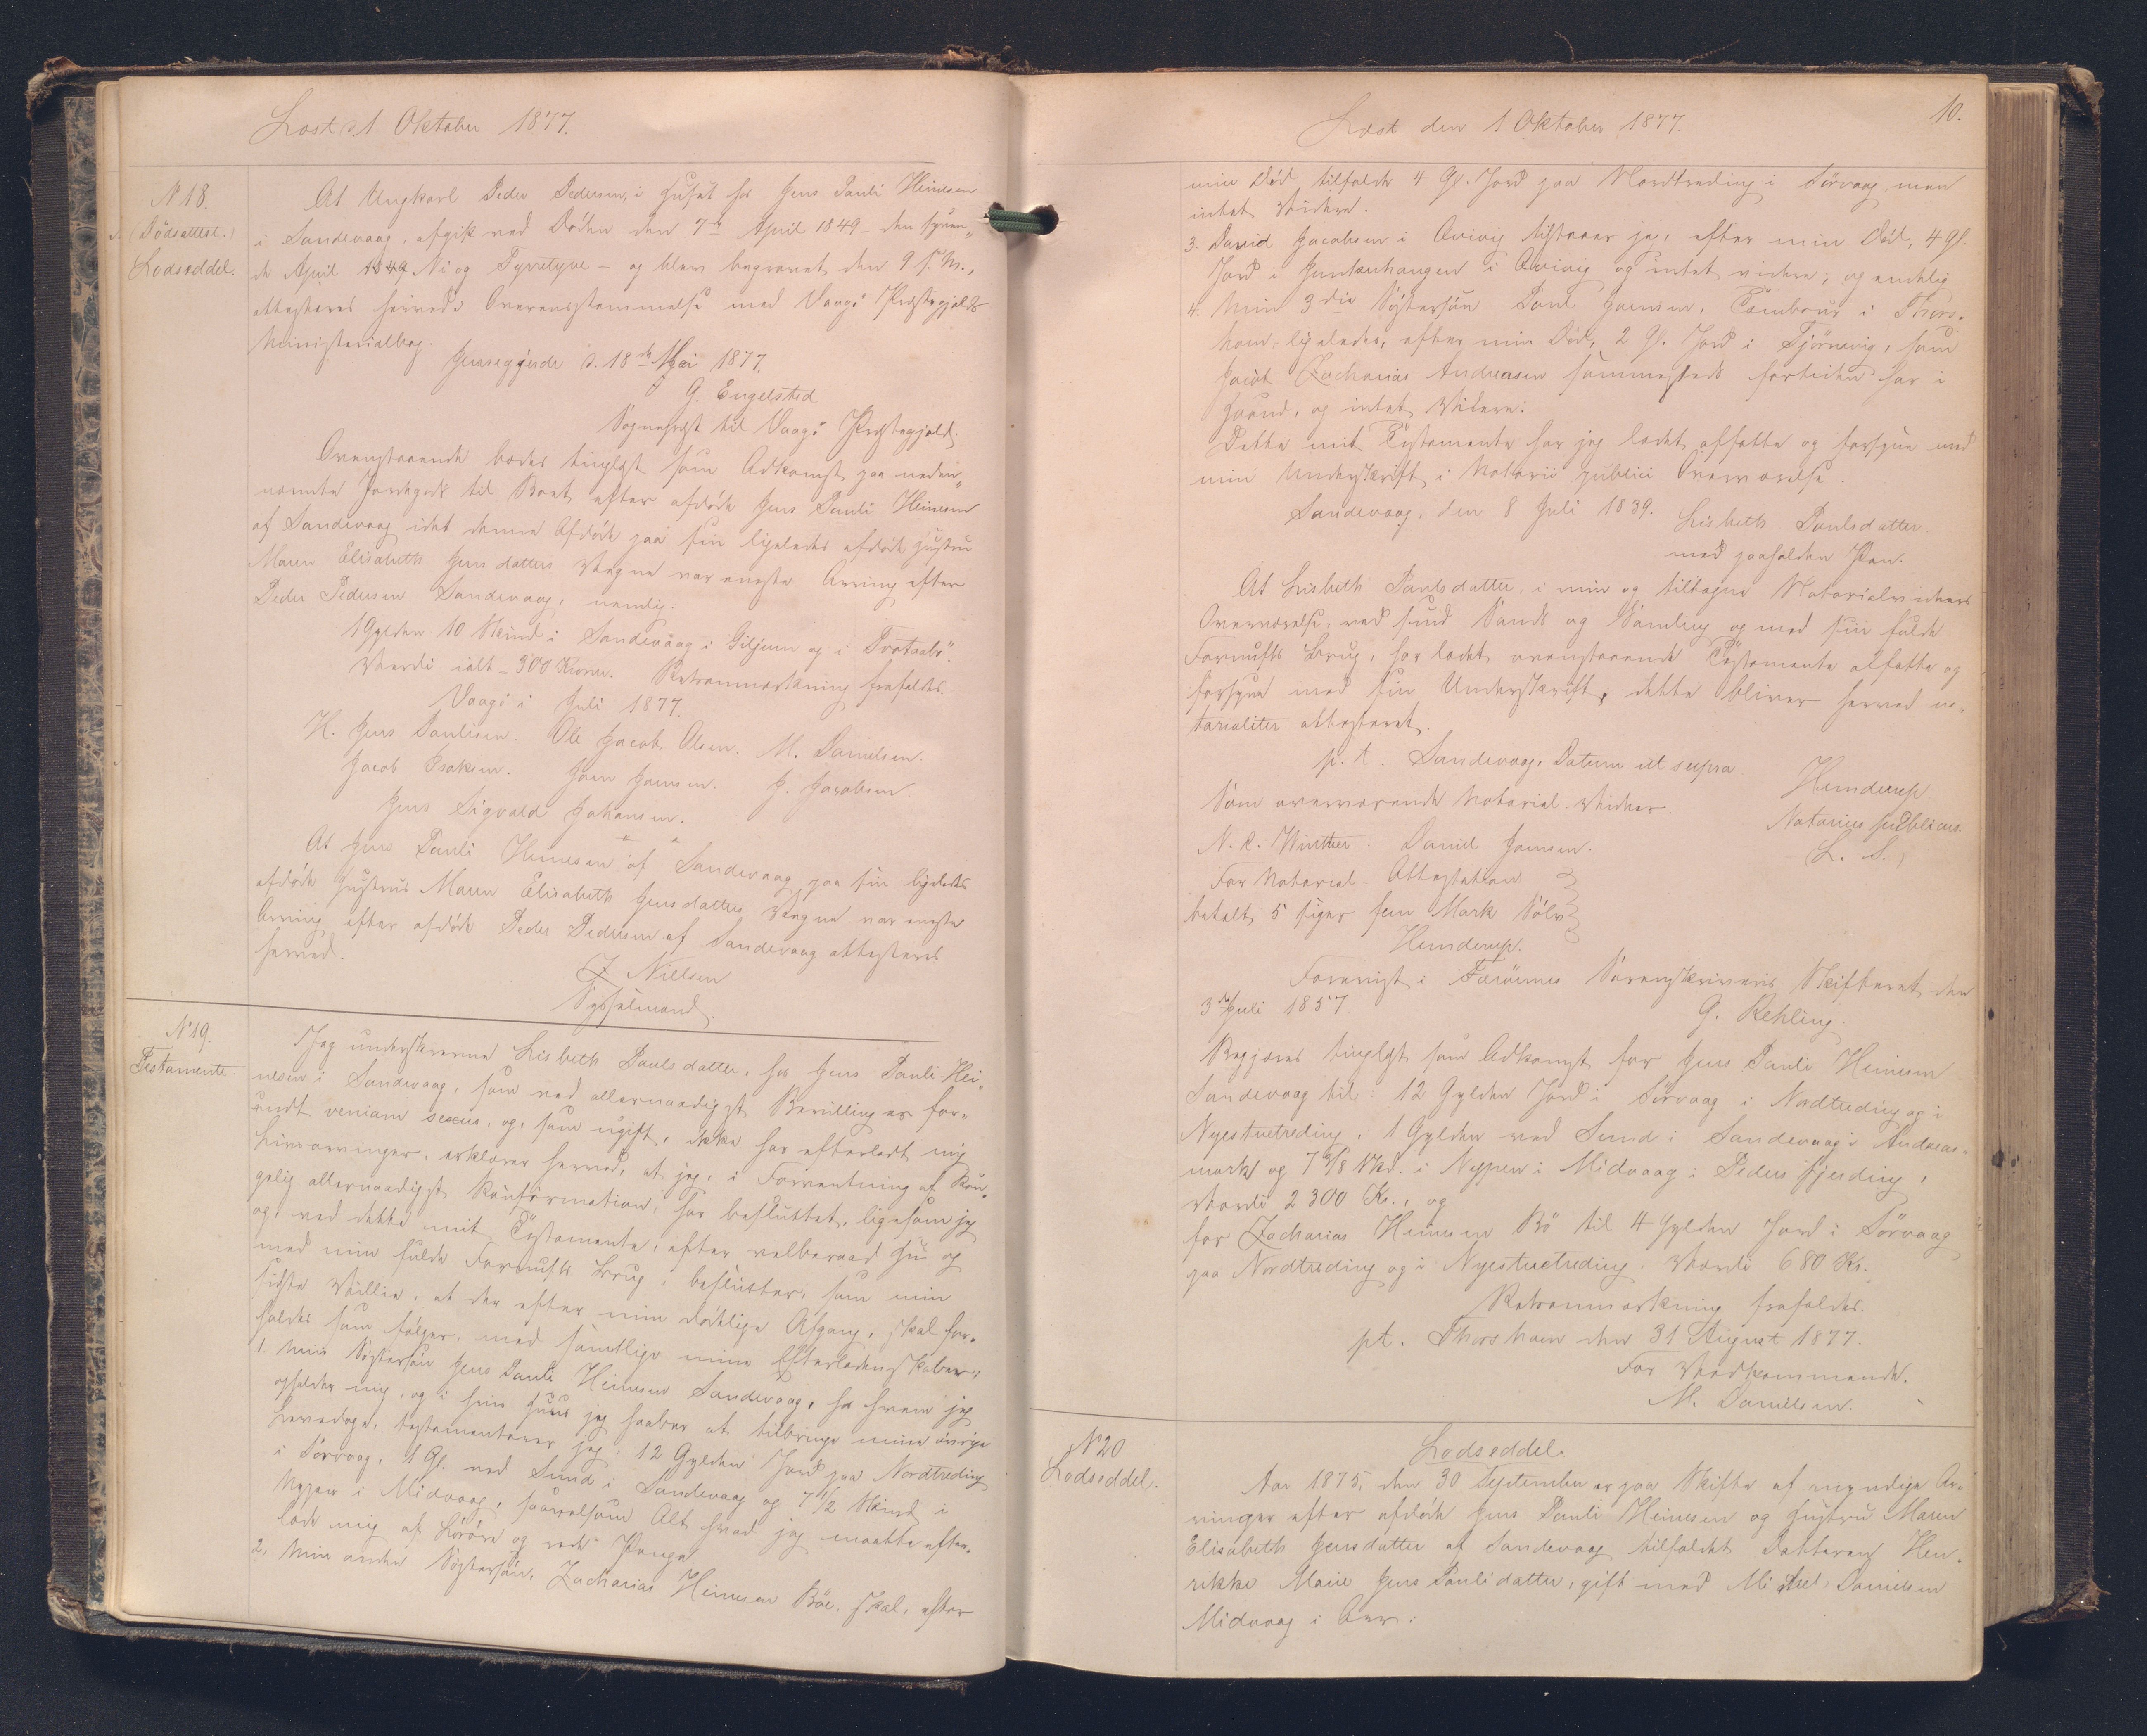 Læst d. 1 Oktober 1877.
N. 18.
(Dødsattest.)
Lodseddel.
At Ungkarl Peder Pedersen, i Huset hos Jens Pauli Heinesen
i Sandevaag, afgik ved Døden den 7de April 1849 – den syven-
de April 1849 Ni og Fyrretyve – og blev begravet den 9 s. M.,
attesteres herved i Overensstemmelse med Vaagø Præstegjelds
Ministerialbog.
Jensegjerde d. 18de Mai 1877.
G. Engelsted
Sognepræst til Vaagø Præstegjeld.
Ovenstaaende bedes tinglæst som Adkomst paa neden-
nævnte Jordegods til Boet efter afdøde Jens Pauli Heinesen
af Sandevaag idet denne Afdøde paa sin ligeledes afdøde Hustru
Maren Elisabeth Jensdatters Vegne var eneste Arving efter
Peder Pedersen Sandevaag, nemlig:
1 Gylden 10 Skind i Sandevaag i Giljum og i Trøtaabø.
Værdi ialt – 300 Kroner. Retranmærkning frafaldes.
Vaagø i Juli 1877.
H. Jens Paulisen. Ole Jacob Olsen. M. Danielsen.
Jacob Isaksen. Joen Joensen. J. Jacobsen.
Jens Sigvald Johansen.
At Jens Pauli Heinesen af Sandevaag paa sin ligeledes
afdøde Hustrus Maren Elisabeth Jensdatters Vegne var eneste
Arving efter afdøde Peder Pedersen af Sandevaag attesteres
herved.
J. Nielsen
Sysselmand.
N. 19.
Testamente.
Jeg underskrevne Lisbeth Poulsdatter, hos Jens Pauli Hei-
nesen i Sandevaag, som ved allernaadigst Bevilling er for-
undt veniam sexus, og, som ugift, ikke har efterladt mig
Livsarvinger, erklærer herved, at jeg, i Forventning af Kon-
gelig allernaadigst Konfirmation, har besluttet, ligesom jeg
og ved dette mit Testamente, efter velberaad Hu og
med min fulde Fornufts Brug, beslutter, som min
sidste Villie, at der efter min dødelige Afgang, skal for-
holdes som følger, med samtlige mine Efterladenskaber:
1. Min Søstersøn Jens Pauli Heinesen Sandevaag, hos hvem jeg
opholder mig, og i hvis Huus jeg haaber at tilbringe mine øvrige
Levedage, testamenterer jeg: 12 Gylden Jord paa Nordtreding
i Sørvaag, 1 Gl. ved Sund i Sandevaag og 7 1/2 Skind i
Nypen i Midvaag, saavelsom Alt hvad jeg maatte efter-
lade mig af Løsøre og rede Penge.
2. Min anden Søstersøn, Zacharias Heinesen Bøe, skal, efter
10.
Læst den 1 Oktober 1877.
min Død tilfalde 4 Gl. Jord paa Nordtreding i Sørvaag, men
intet Videre.
3. David Jacobsen i Qvivig tilstaaer jeg, efter min Død, 4 Gl.
Jord i i Qvivig og intet videre; og endelig
4. Min 3die Søstersøn Poul Joensen, Tambour i Thors-
havn, ligeledes, efter min Død, 2 Gl. Jord i Tjørnevig, som
Jacob Zacharias Andreasen sammesteds fortiden har i
Haand, og intet Videre.
Dette mit Testamente har jeg ladet affatte og forsyne med
min Underskrift i Notarii publici Overværelse.
Sandevaag, den 8 Juli 1839. Lisbeth Poulsdatter
med paaholden Pen.
At Lisbeth Poulsdatter, i min og tiltagne Notarialvidners
Overværelse, ved sund Sands og Samling og med sin fulde
Fornufts Brug, har ladet ovenstaaende Testamente affatte og
forsyne med sin Underskrift, dette bliver herved no-
tarialiter attesteret.
p. t. Sandevaag, Datum ut supra
Hunderup
Notarius publicus.
L. S.
Som overværende Notarial-Vidner.
N. C. Winther. Daniel Joensen.
For Notarial Attestation
betalt 5 siger fem Mark Sølv
Hunderup.
Forevist i Færøernes Sorenskriveris Skifteret den
3die Juli 1857.
G. Rehling
Begjæres tinglæst som Adkomst for Jens Pauli Heinesen
Sandevaag til: 12 Gylden Jord i Sørvaag i Nordtreding og i
Nyestuetreding, 1 Gylden ved Sund i Sandevaag i Andreas-
mark og 7 Skd. i Nypen i Midvaag i Peders Fjerding,
Værdi 2300 Kr., og
for Zacharias Heinesen Bø til 4 Gylden Jord i Sørvaag
paa Nordtreding og i Nyestuetreding. Værdi 680 Kr.
Retranmærkning frafaldes.
pt. Thorshavn den 31 August 1877.
For Vedkommende.
M. Danielsen.
No 20
Lodseddel.
Lodseddel.
Aar 1875, den 30 September er paa Skifte af myndige Ar-
vinger efter afdøde Jens Pauli Heinesen og Hustru Maren
Elisabeth Jensdatter af Sandevaag tilfaldet Datteren Hen-
rikke Marie Jens Paulidatter, gift med Mikkel Danielsen
Midvaag i Arv: